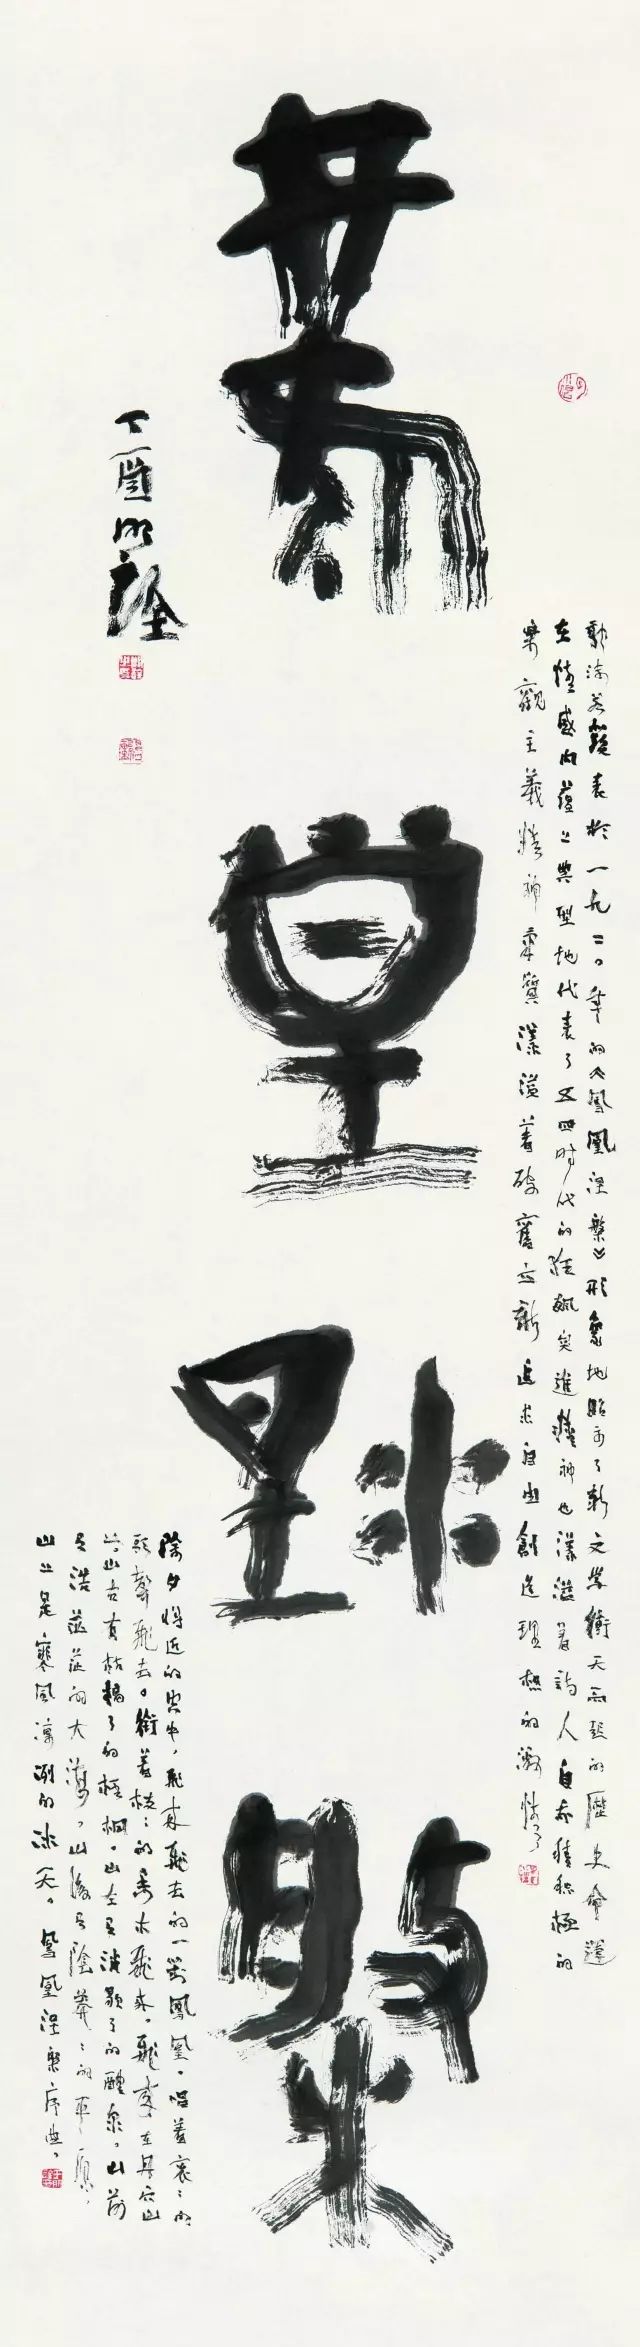 鳳凰涅槃
郭沫若發表於一九二〇年的《鳳凰涅槃》形象地昭示了新文學衝天而起的歷史命運
在情感內蘊上典型地代表了五四時代的狂飆突進精神也漾溢着詩人自積極的
樂觀主義精神氣質漾溢着破舊立新追求自由創造理想的激情
除夕將近的空中，飛來飛去的一對鳳凰，唱着哀〻的
歌聲飛去。銜着枝〻的香木飛來，飛來在丹穴山
山右有枯槁了的梧桐。山左有消歇了的醴泉。山前
有浩茫茫的大海，山後有陰莽〻的平原，
山上是寒風凜冽的冰天。鳳凰涅槃序曲。
丁酉明詮